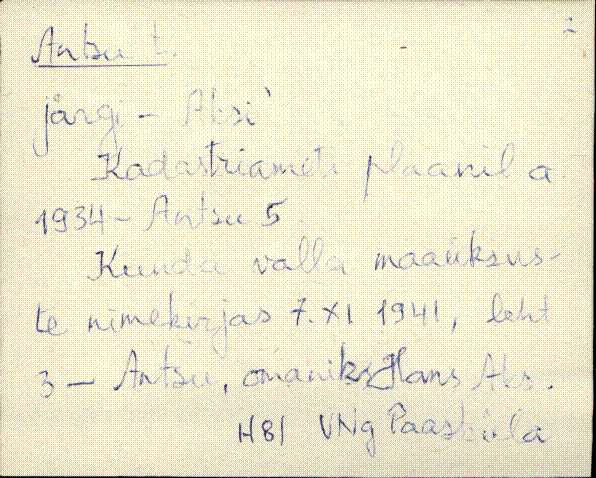 Antsu t.
järgi - Aksi
Kadastriameti plaanil a.
1934 - Antsu 5.
Kunda valla maaüksus-
te nimekirjas 7.XI 1941, leht
3 - Antsu, omanik Hans Aks.
H81 VNg Paasküla